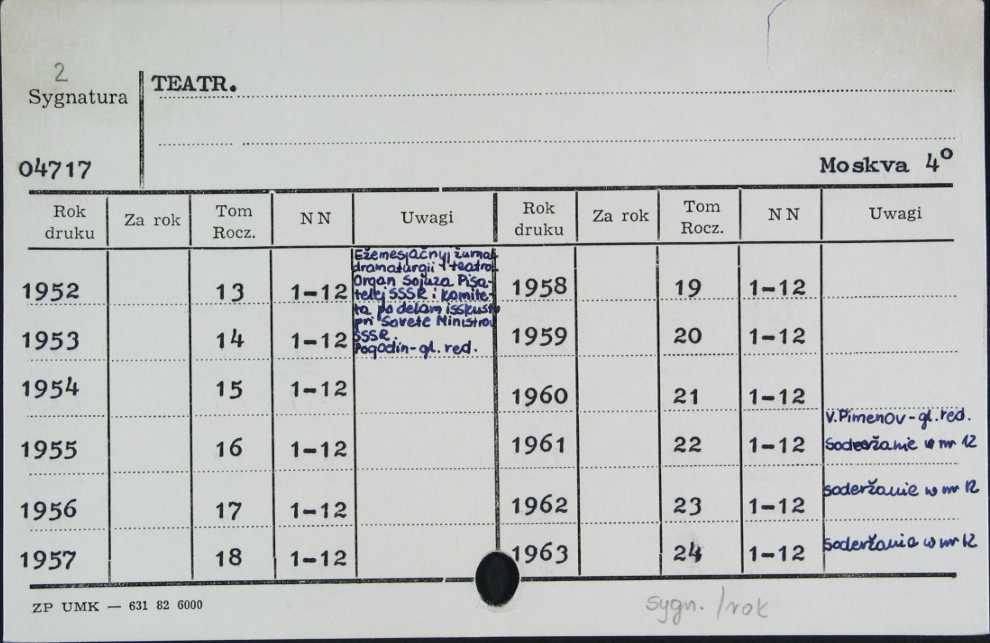 2
Sygnatura
TEATR.
04717
Moskva 4º
Rok druku Za rok Tom Rocz. NN Uwagi Rok druku Za rok Tom Rocz. NN Uwagi
Ežemesjačnyj žurnal
dramaturgii i teatra.
Organ Sojuza Pisa-
telej SSSR i komite-
ta po delam isskustv
pri Sovete Ministrov
SSSR.
Pogodin-gl. red.
1952 13 1-12 1958 19 1-12
1953 14 1-12 1959 20 1-12
1954 15 1-12 1960 21 1-12
V.Pimenov-gl.red.
1955 16 1-12 1961 22 1-12 Soderžanie w nr 12
1956 17 1-12 1962 23 1-12 soderžanie w nr 12
1957 18 1-12 1963 24 1-12 Soderžanie w nr 12
ZP UMK — 631 82 6000
sygn. /rok